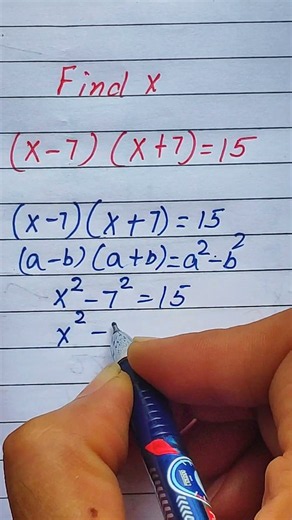 Find x
(x-7) (x+7)=15
(x-7)(x+7)=15
(a-b)(a+b)=a²-b²
x²-7²=15
x²-